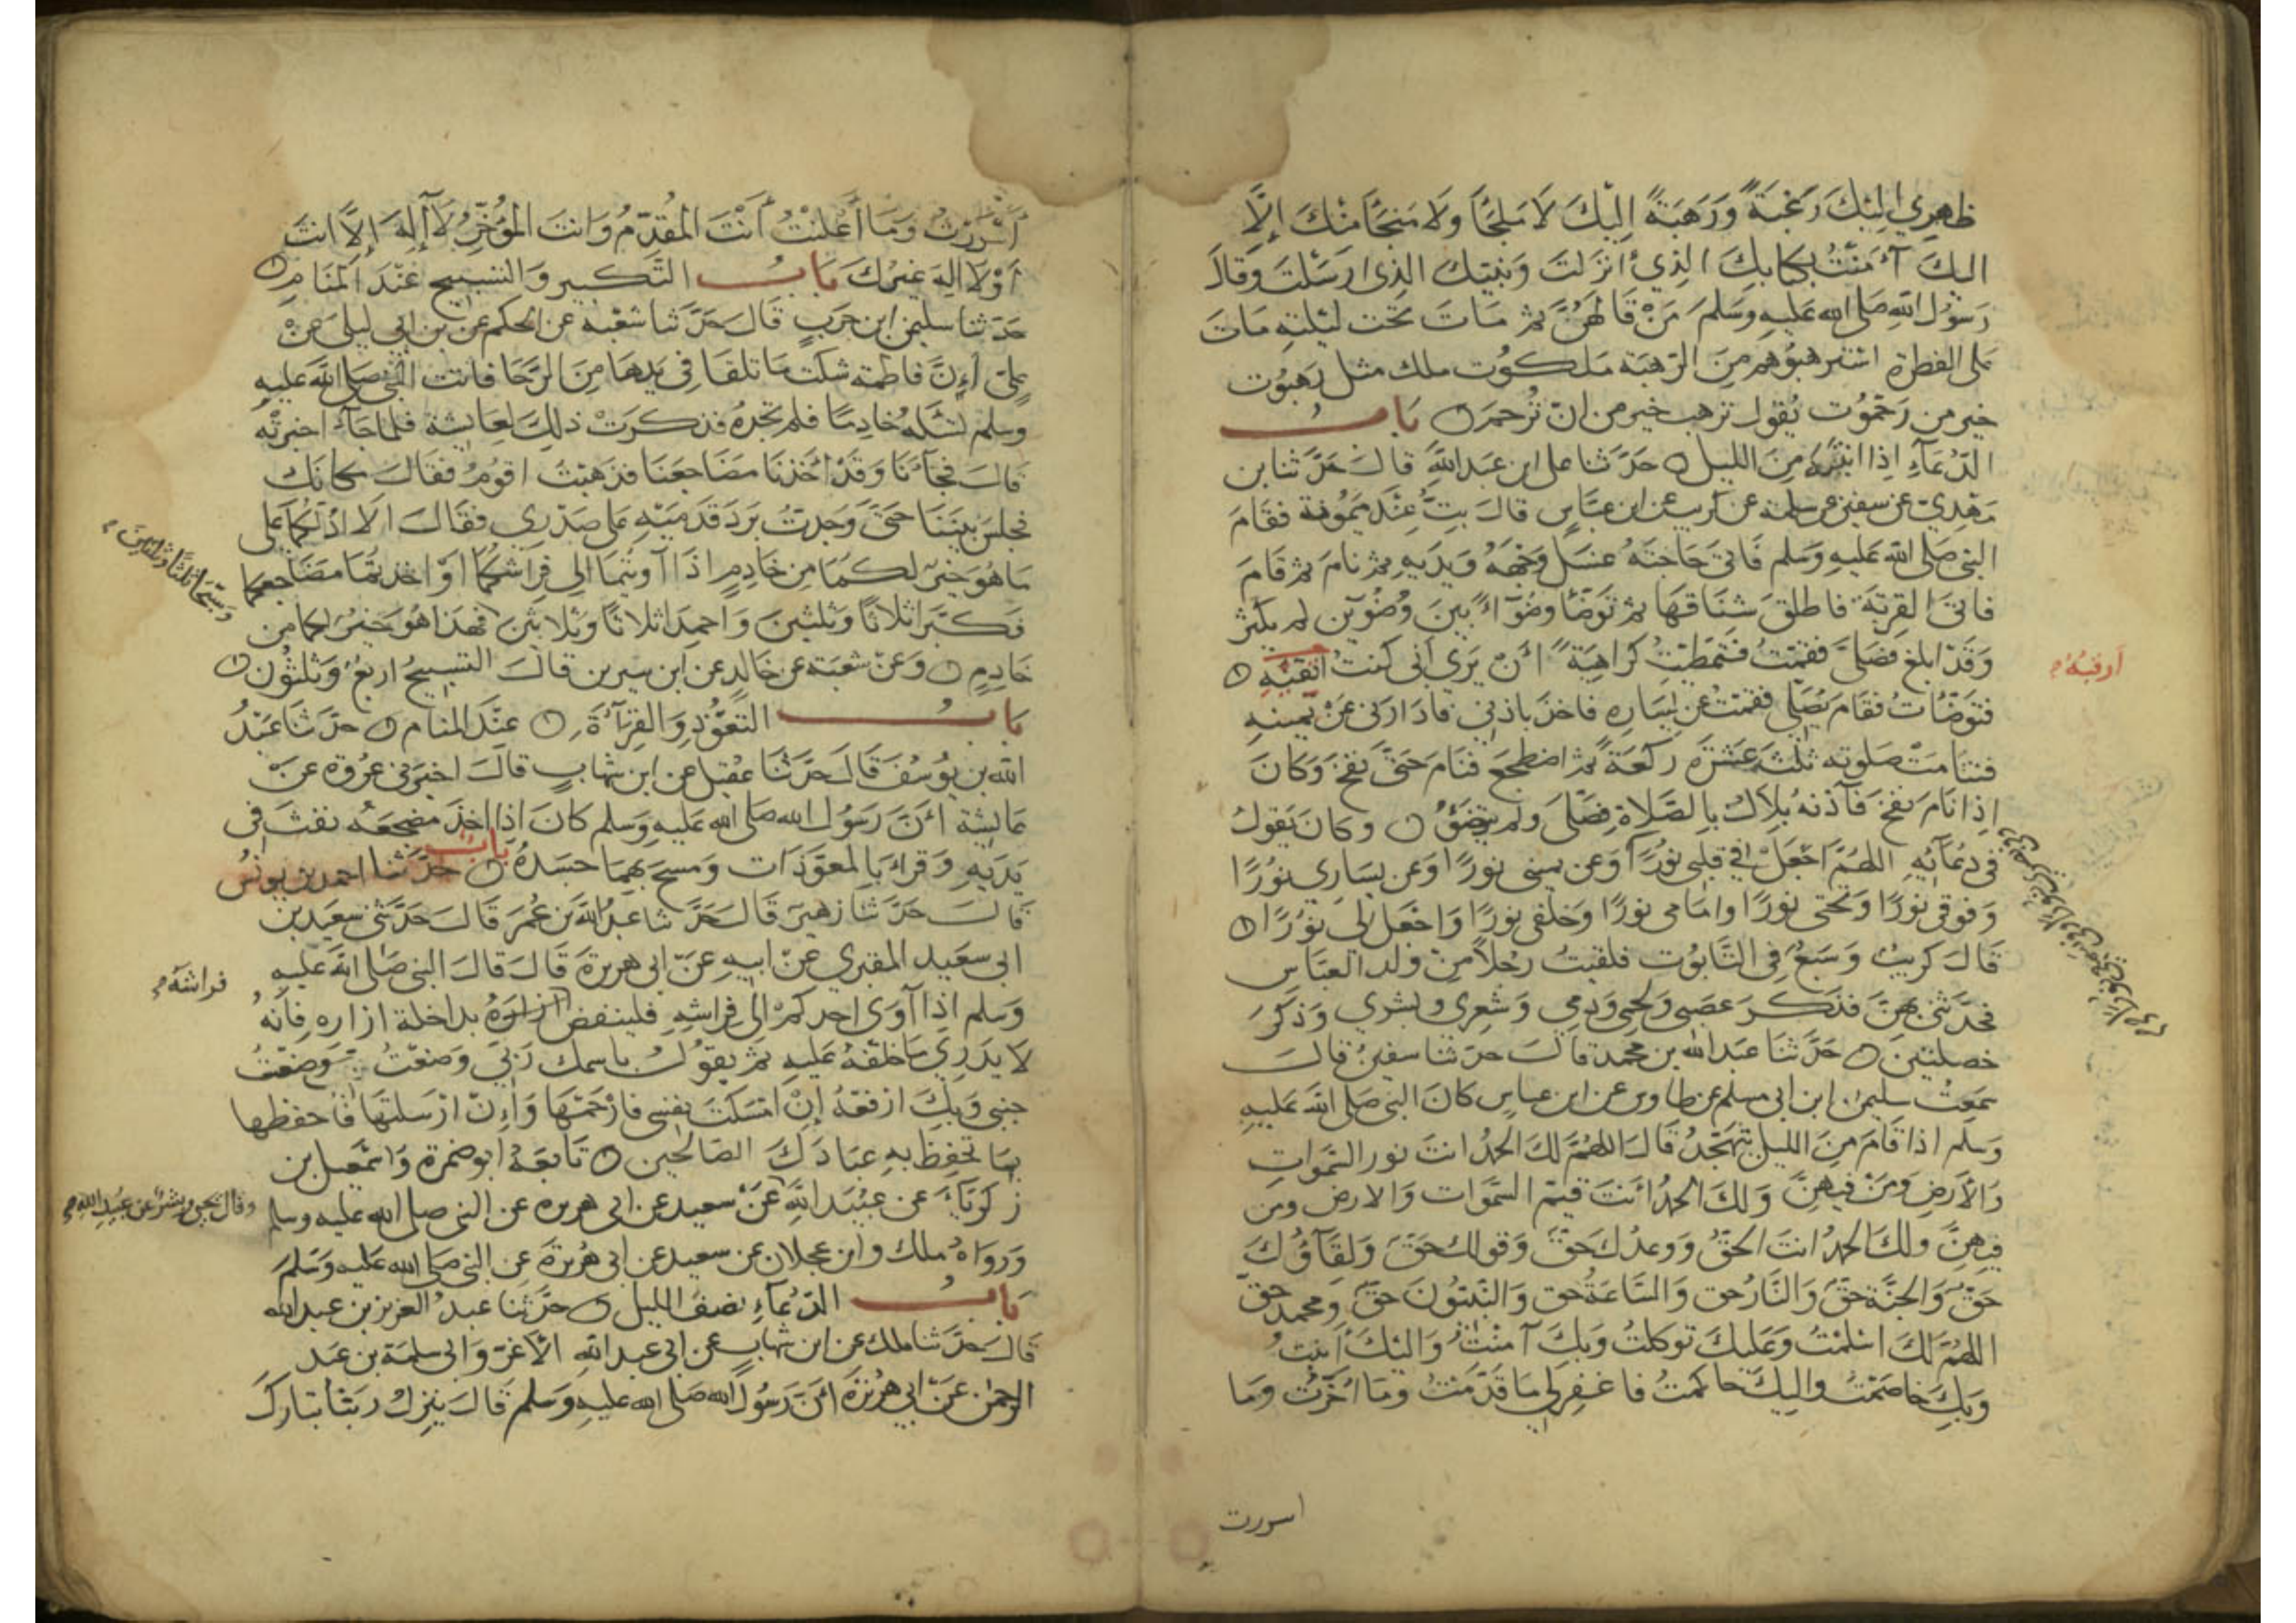 ظهري اليك رغبة ورهبة اليك لا ملجأ ولا منجأ منك الا
اليك آمنت بكتابك الذي انزلت ونبيك الذي ارسلت وقال
رسول الله صلى الله عليه وسلم من قالهن ثم مات تحت ليلته مات
على الفطرة استرهبوهم من الرهبة ملكوت ملك مثل رهبوت
خير من رحموت يقول ترهب خير من ان ترحم باب
الدعاء اذا انتبه من الليل حدثنا على ابن عبد الله قال حدثنا بن
مهدي عن سفين عن سلمة عن كريب عن ابن عباس قال بت عند ميمونة فقام
النبي صلى الله عليه وسلم فاتى حاجته غسل وجهه ويديه ثم نام ثم قام
فاتى القربة فاطلق شناقها ثم توضأ وضوءا بين وضوين لم يكثر
وقد ابلغ فصلى فقمت فتمطيت كراهية ان يرى اني كنت اتقيه
ارقبه
فتوضأت فقام يصلي فقمت عن يساره فاخذ باذني فادارني عن يمينه
فتتامت صلوته ثلث عشرة ركعة ثم اضطجع فنام حتى نفخ وكان
اذا نام نفخ فآذنه بلال بالصلاة فصلى ولم يتوضأ وكان يقول
في دعائه اللهم اجعل في قلبي نورا وعن يميني نورا وعن يساري نورا
وفوقي نورا وتحتي نورا وامامي نورا وخلفي نورا واجعل لي نورا
قال كريب وسبع في التابوت فلقيت رجلا من ولد العباس
فحدثني بهن فذكر عصبي ولحمي ودمي وشعري وبشري وذكر
خصلتين حدثنا عبد الله بن محمد قال حدثنا سفين قال
سمعت سليمن ابن ابي مسلم عن طاوس عن ابن عباس كان النبي صلى الله عليه
وسلم اذا قام من الليل يتهجد قال اللهم لك الحمد انت نور السموات
والارض ومن فيهن ولك الحمد انت قيم السموات والارض ومن
فيهن ولك الحمد انت الحق ووعدك حق وقولك حق ولقاؤك
حق والجنة حق والنار حق والساعة حق والنبيون حق ومحمد حق
اللهم لك اسلمت وعليك توكلت وبك آمنت واليك انبت
وبك خاصمت واليك حاكمت فاغفر لي ما قدمت وما اخرت وما
اسررت
اسررت وما اعلنت انت المقدم وانت المؤخر لا اله الا انت
او لا اله غيرك باب التكبير والتسبيح عند المنام
حدثنا سليمن ابن حرب قال حدثنا شعبة عن الحكم عن بن ابي ليلى عن
علي ان فاطمة شكت ما تلقا في يدها من الرحا فاتت النبي صلى الله عليه
وسلم تسئله خادما فلم تجده فذكرت ذلك لعايشة فلما جاء اخبرته
قال فجاءنا وقد اخذنا مضاجعنا فذهبت اقوم فقال مكانك
فجلس بيننا حتى وجدت برد قدميه على صدري فقال الا ادلكما على
ما هو خير لكما من خادم اذا آويتما الي فراشكما او اخذتما مضاجعكما
وسبحا ثلثا وثلثين
فكبرا ثلاثا وثلثين واحمدا ثلاثا وثلاثين فهذا هو خير لكما من
خادم وعن شعبة عن خالد عن ابن سيرين قال التسبيح اربع وثلثون
باب التعوذ والقرآءة عند المنام حدثنا عبد
الله بن يوسف قال حدثنا عقيل عن ابن شهاب قال اخبرني عروة عن
عايشة ان رسول الله صلى الله عليه وسلم كان اذا اخذ مضجعه نفث في
يديه وقرا بالمعوذات ومسح بهما جسده باب حدثنا احمد بن يونس
قال حدثنا زهير قال حدثنا عبد الله بن عمر قال حدثني سعيد بن
ابي سعيد المقبري عن ابيه عن ابي هريرة قال قال النبي صلى الله عليه
فراشه
وسلم اذا آوى احدكم الى فراشه فلينفض ازاره بداخلة ازاره فانه
لا يدري ما خلفه عليه ثم يقول باسمك ربي وضعت وضعت
جنبي وبك ارفعه ان امسكت نفسي فارحمها وان ارسلتها فاحفظها
بما تحفظ به عبادك الصالحين تابعه ابو ضمرة واسمعيل بن
زكرياء عن عبيد الله عن سعيد عن ابي هريرة عن النبي صلى الله عليه وسلم
وقال يحيى وبشر عن عبيد الله
ورواه ملك وابن عجلان عن سعيد عن ابي هريرة عن النبي صلى الله عليه وسلم
باب الدعاء نصف الليل حدثنا عبد العزيز بن عبد الله
قال حدثنا ملك عن ابن شهاب عن ابي عبد الله الاغر وابي سلمة بن عبد
الرحمن عن ابي هريرة ان رسول الله صلى الله عليه وسلم قال ينزل ربنا تبارك